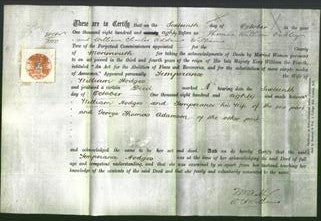 These are to Certify that on the Sixteenth day of October in the year
One thousand eight hundred and eighty eight before us Thomas William Oakley
and William
Two of the Perpetual Commissioners appointed for the County
of Monmouth for taking the acknowledgments of Deeds by Married Women pursuant
to an Act passed in the third and fourth years of the reign of His late Majesty King William the Fourth,
intituled "An Act for the Abolition of Fines and Recoveries, and for the substitution of more simple modes
of Assurance," Appeared personally Temperance
William Hodges
and produced a certain Deed marked A bearing date the Sixteenth
day of October One thousand eight hundred and eighty and made between
William Hodges and Temperance his Wife of the one part
and George Thomas Adamson of the other part
and acknowledged the same to be her act and Deed. And we do hereby Certify that the said
Temperance Hodges was at the time of her acknowledging the said Deed of full
age and competent understanding, and that she was examined by us apart from her husband, touching her
knowledge of the contents of the said Deed and that she freely and voluntarily consented to the same.